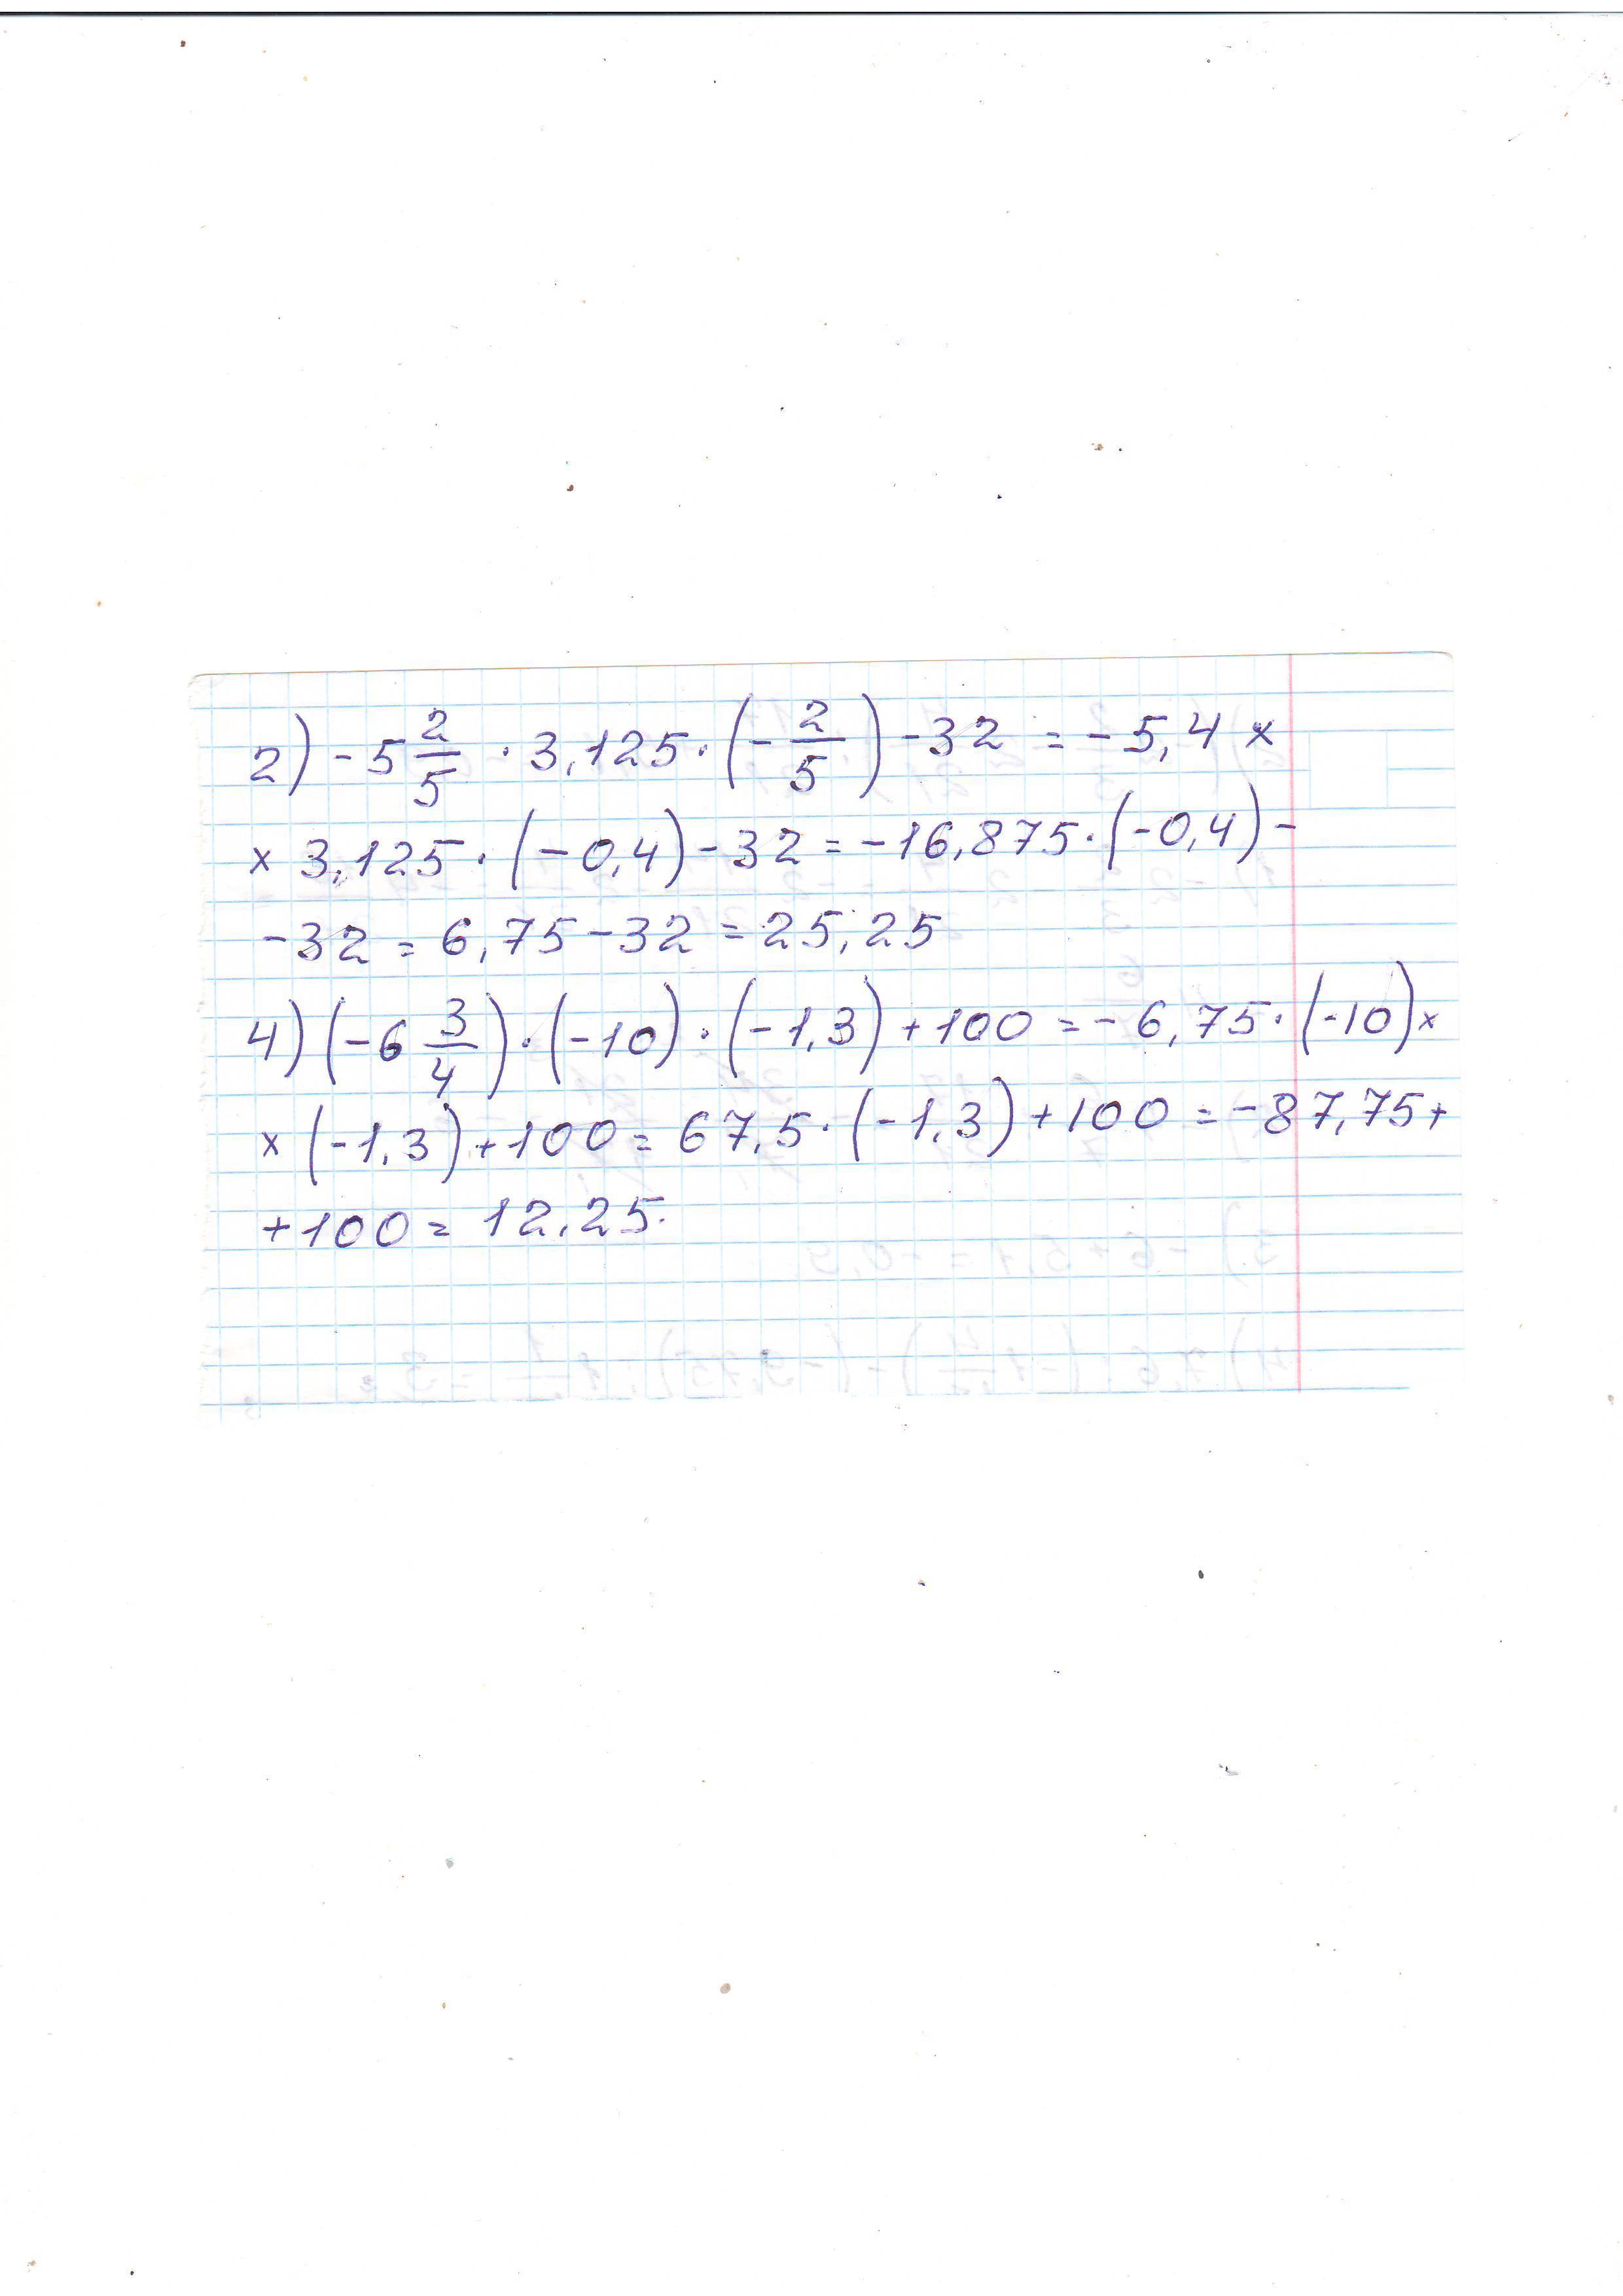 2) -5 2/5 · 3,125 · (- 2/5) - 32 = - 5,4 ×
× 3,125 · (- 0,4) - 32 = - 16,875 · (- 0,4) -
- 32 = 6,75 - 32 = 25,25
4) (-6 3/4) · (-10) · (-1,3) + 100 = - 6,75 · (-10) ×
× (-1,3) + 100 = 67,5 · (-1,3) + 100 = - 87,75 +
+ 100 = 12,25.